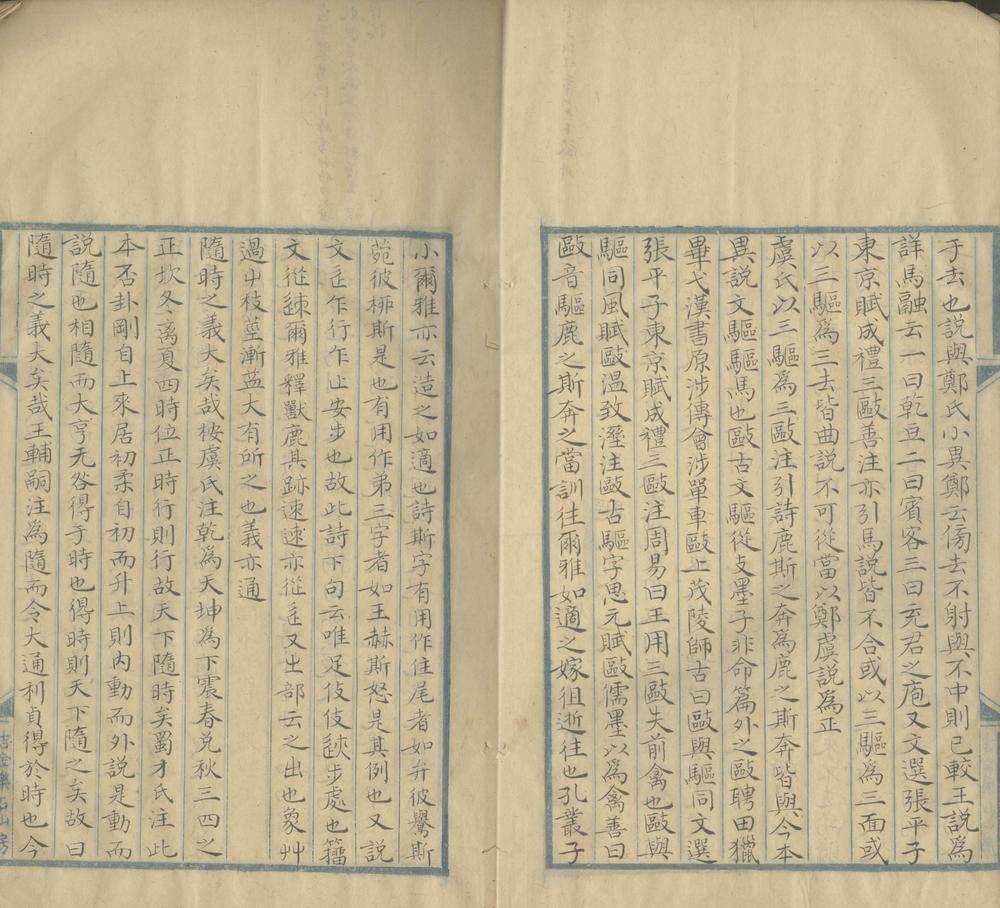 于去也説與鄭氏小異鄭云傍去不射與不中則已較王説為
詳馬融云一曰乾豆二曰賓客三曰充君之庖又文選張平子
東京賦成禮三敺善注亦引馬説皆不合或以三驅為三面或
以三驅為三去皆曲説不可從當以鄭虞説為正
虞氏以三驅為三敺注引詩鹿斯之奔為鹿之斯奔皆與今本
異説文驅驅馬也敺古文驅從攴墨子非命篇外之敺聘田獵
畢弋漢書原涉傳會涉單車敺上茂陵師古曰敺與驅同文選
張平子東京賦成禮三敺注周易曰王用三敺失前禽也敺與
驅同風賦敺温致溼注敺古驅字思元賦敺儒墨以為禽善曰
敺音驅鹿之斯奔之當訓往爾雅如適之嫁徂逝往也孔叢子
小爾雅亦云造之如適也詩斯字有用作住尾者如弁彼鸒斯
菀彼栁斯是也有用作弟三字者如王赫斯怒是其例也又説
文辵乍行乍止安步也故此詩下句云唯足伎伎䟐步處也籀
文從迹爾雅釋獸鹿其跡速速亦從辵又㞢部云之出也象艸
過屮枝莖漸益大有所之也義亦通
隨時之義大矣哉桉虞氏注乾為天坤為下震春兑秋三四之
正坎冬離夏四時位正時行則行故天下隨時矣蜀才氏注此
本否卦剛自上來居初柔自初而升上則内動而外説是動而
説隨也相隨而大亨无咎得于時也得時則天下隨之矣故曰
隨時之義大矣哉王輔嗣注為隨而令大通利貞得於時也今